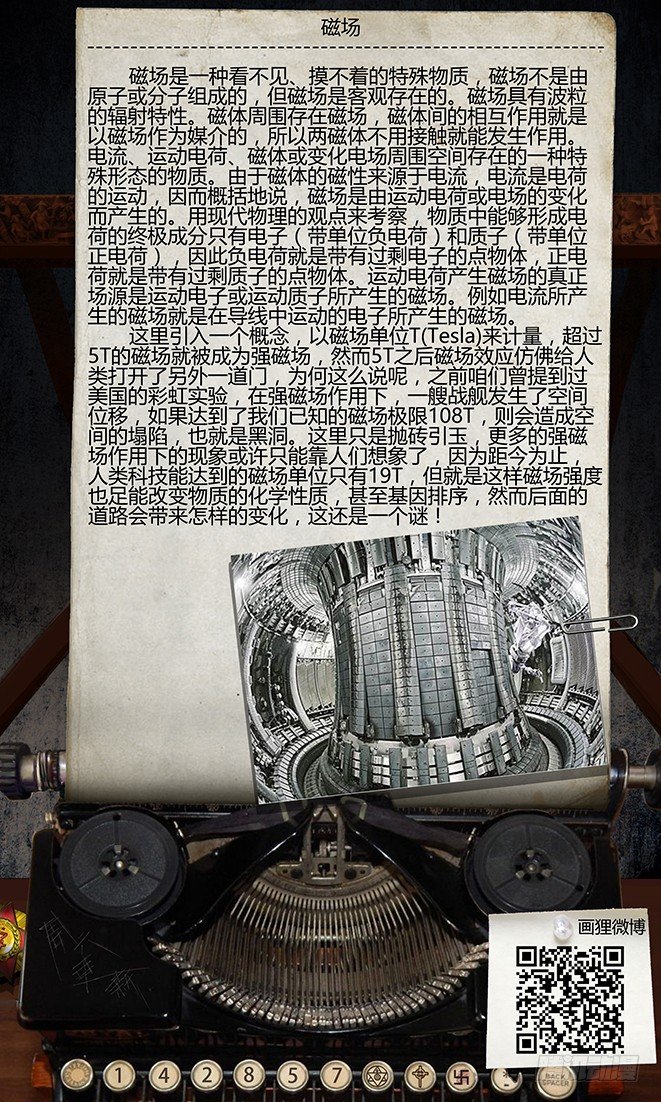 磁场
磁场是一种看不见、摸不着的特殊物质，磁场不是由
原子或分子组成的，但磁场是客观存在的。磁场具有波粒
的辐射特性。磁体周围存在磁场，磁体间的相互作用就是
以磁场作为媒介的，所以两磁体不用接触就能发生作用。
电流、运动电荷、磁体或变化电场周围空间存在的一种特
殊形态的物质。由于磁体的磁性来源于电流，电流是电荷
的运动，因而概括地说，磁场是由运动电荷或电场的变化
而产生的。用现代物理的观点来考察，物质中能够形成电
荷的终极成分只有电子（带单位负电荷）和质子（带单位
正电荷），因此负电荷就是带有过剩电子的点物体，正电
荷就是带有过剩质子的点物体。运动电荷产生磁场的真正
场源是运动电子或运动质子所产生的磁场。例如电流所产
生的磁场就是在导线中运动的电子所产生的磁场。
这里引入一个概念，以磁场单位T(Tesla)来计量，超过
5T的磁场就被成为强磁场，然而5T之后磁场效应仿佛给人
类打开了另外一道门，为何这么说呢，之前咱们曾提到过
美国的彩虹实验，在强磁场作用下，一艘战舰发生了空间
位移，如果达到了我们已知的磁场极限108T，则会造成空
间的塌陷，也就是黑洞。这里只是抛砖引玉，更多的强磁
场作用下的现象或许只能靠人们想象了，因为距今为止，
人类科技能达到的磁场单位只有19T，但就是这样磁场强度
也足能改变物质的化学性质，甚至基因排序，然而后面的
道路会带来怎样的变化，这还是一个谜！
画狸微博
1 4 2 8 5 7
BACK
SPACER